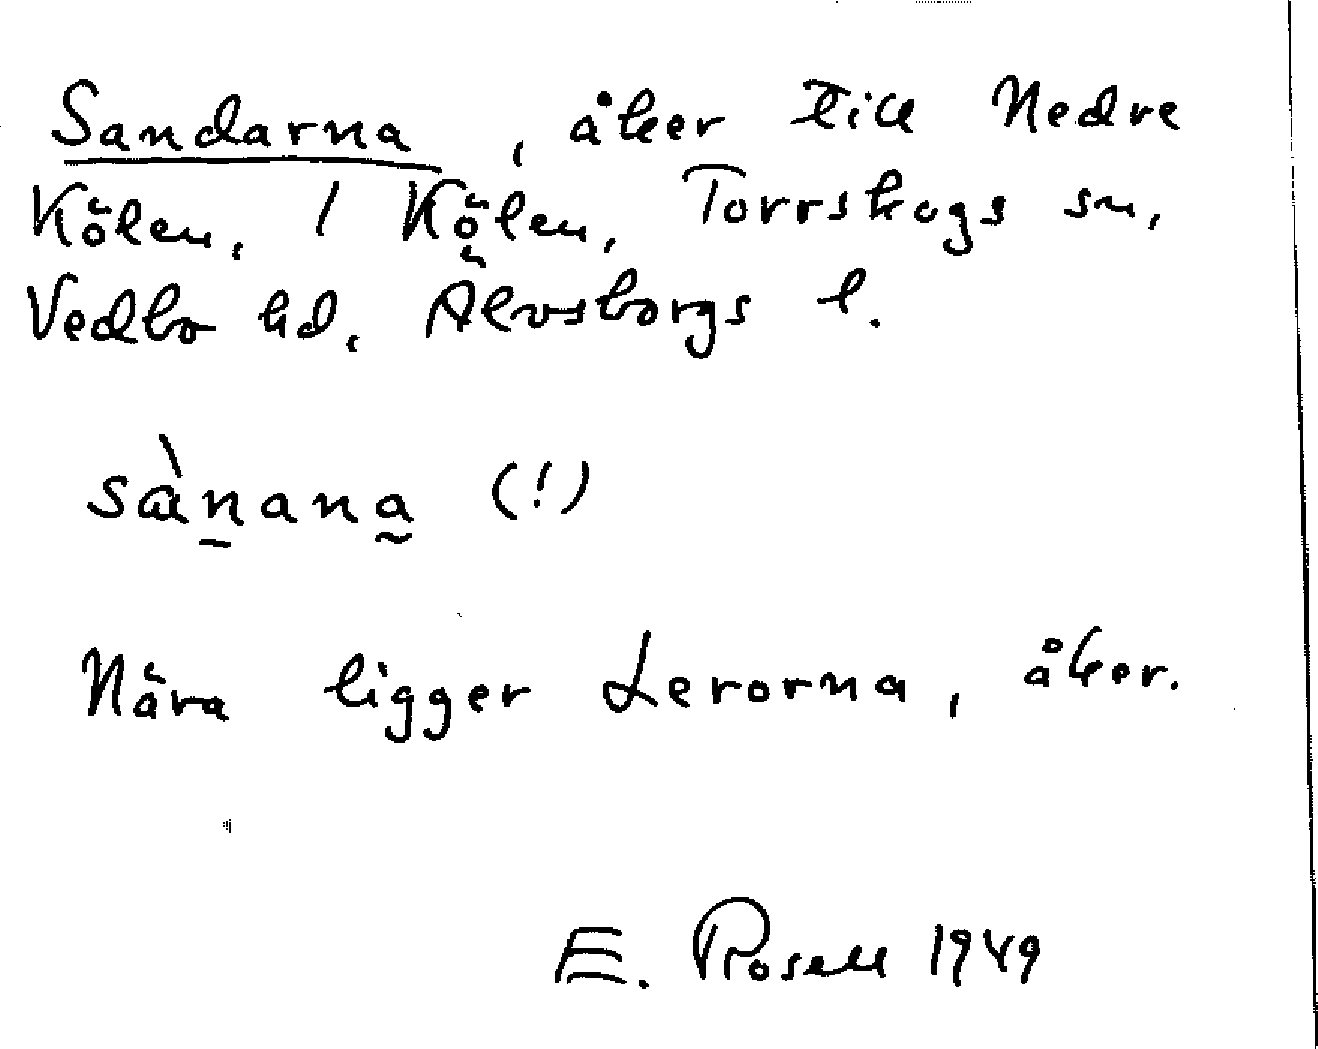 Sandarna, åker till Nedre
Kölen, 1 Kölen, Torrskogs sn,
Vedbo hd, Älvsborgs l.
sànana (!)
Nära ligger Lerorna, åker.
E. Rosell 1949